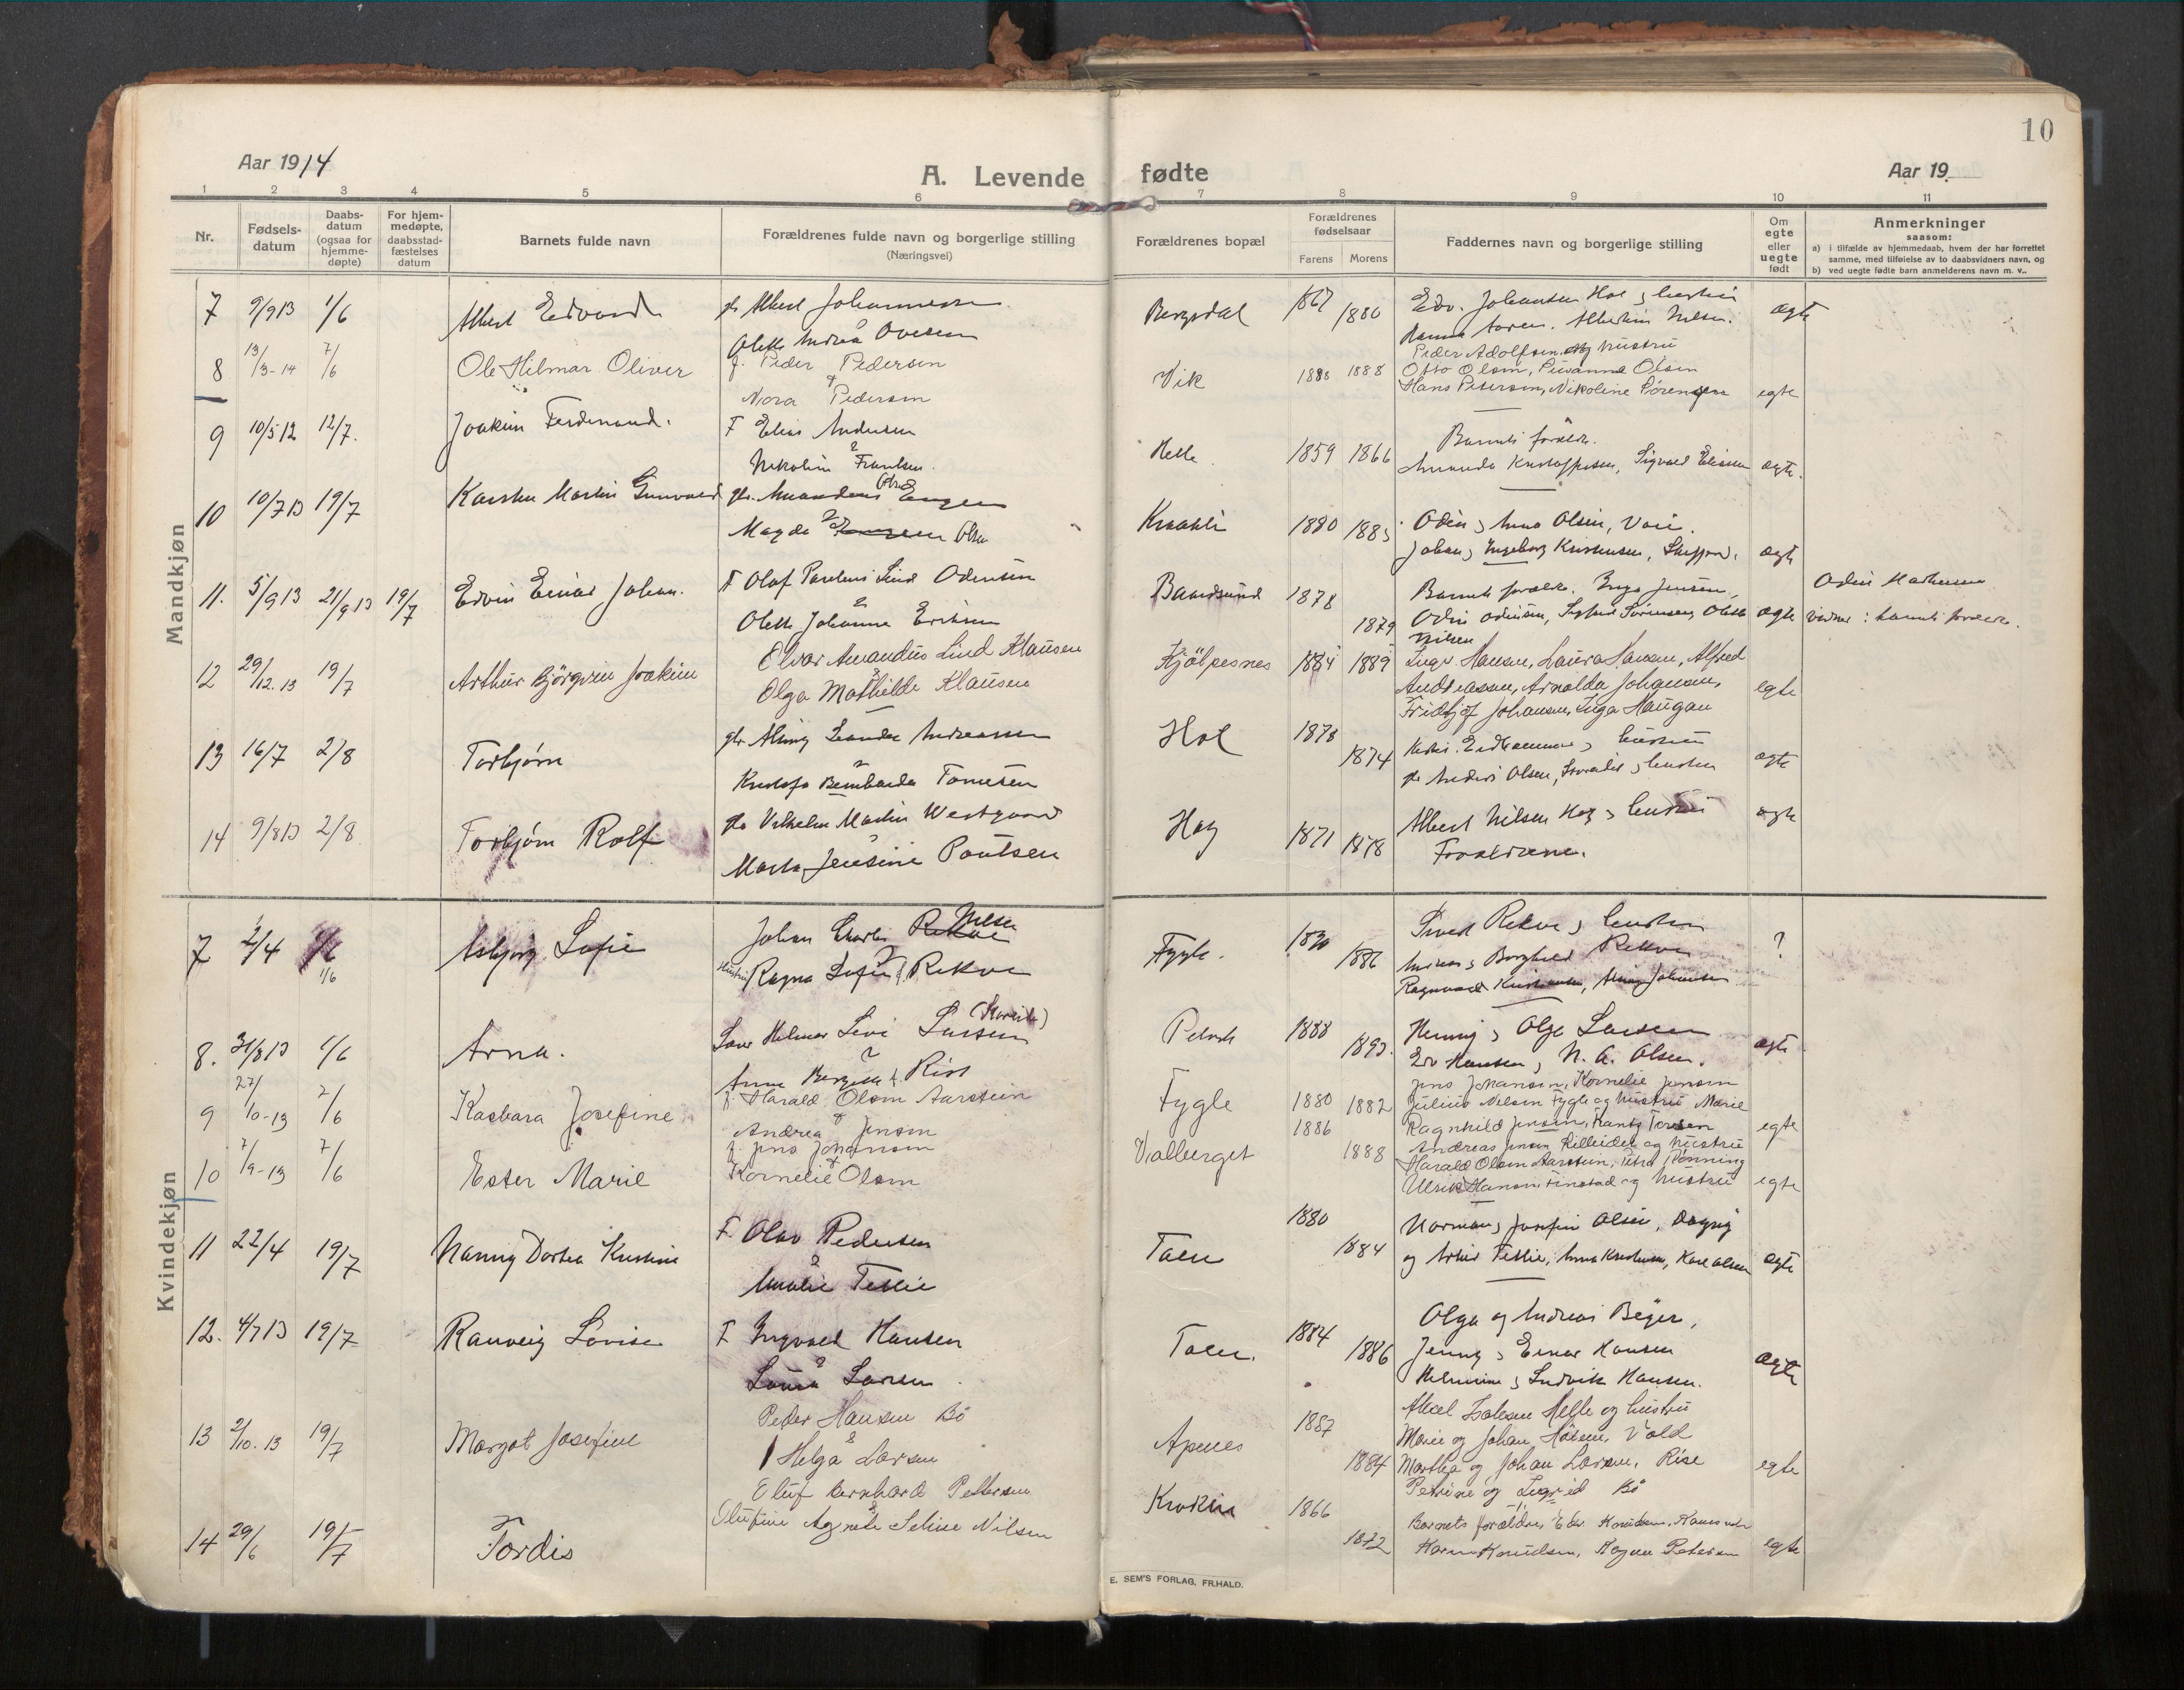 10
Aar 1914
A. Levende fødte
Aar 19
1 2 3 4 5 6 7 8 9 10 11
Nr.
Fødsels-
datum
Daabs-
datum
(ogsaa for
hjemme-
døpte)
For hjem-
medøpte,
daabsstad-
fæstelses
datum
Barnets fulde navn
Forældrenes fulde navn og borgerlige stilling
(Næringsvei)
Forældrenes bopæl
Forældrenes
fødselsaar
Farens Morens
Faddernes navn og borgerlige stilling
Om
egte
eller
uegte
født
Anmerkninger
saasom:
a) i tilfælde av hjemmedaab, hvem der har forrettet
samme, med tilføielse av to daabsvidners navn, og
b) ved uegte fødte barn anmelderens navn m. v..
Mandkjøn
7 9/9 13 1/6 Albert Edvard Albert Johannessen
Olette Andrea Ovesen
Bergsdal 1867 1880 Edv. Johansen Hol
ægte
8 13/3-14 7/6 Ole Hilmar Oliver f. Peder Pedersen
Nora Pedersen
Vik 1888 1888 Peder Adolfsen og hustru
Otto Olsen, Susanna Olsen
Hans Petersen, Nikoline Sørensen egte
9 10/5 12 12/7. Joakim Ferdinand. F Elias Andersen
Nikoline Frantsen.
Helle 1859 1866 Barnets foreldre.
Amanda Kristoffersen, Sigvald Eliassen ægte.
10 10/7 13 19/7 Karsten Martin Gunvald Olsen
Magda Olsen
1880 1885 Odin Anna Olsen,
Johan, Ingeborg Kristensen, ægte
11. 5/9 13 21/9 13 19/7 Edvin Einar Johan. F Olaf Paulens Lind Odinsen
Olette Johanna Eriksen
Baadsund 1878 1879 Barnets foreldre. Inga Jensen,
Odin Odinsen, Sigfred Sørensen, Olette
Nilsen ægte
Odin Mathisen
vidner: barnets foreldre.
12 29/12. 13 19/7 Arthur Bjørgvin Joakim Elvar Amandus Lind Klausen
Olga Mathilde Klausen
Kjølpesnes 1884 1889 Inga Hansen, Laura Hansen, Alfred
Andreassen, Arnolda Johansen,
Fridtjof Johansen, Inga Haugan egte
13 16/7 2/8 Torbjørn Leander Andreassen
Kristofa Bernharda Tomesen
Hol 1878 1874
Anders Olsen, ægte
14 9/8 13 2/8 Torbjørn Rolf Vilhelm Martin Westgaard
Marta Jensine Poulsen
Hag 1871 1878 Albert Nilsen Hag
Forældrene. ægte
Kvindekjøn
7 2/4 1/6 Asbjørg Sofie Johan Charles Nilsen
Hustru Ragna Sofie f. Rekve
Fygle. 1886 Sivert Rekve
Borghild Rekve
Ragnvald Kristiansen, Johansen ?
8. 31/8 13 1/6 Arna. Helmer Levi Larsen
Anna Bergitte f. Rist
1888 1893. Henning, Olga Larsen
Edv Hansen, N. A. Olsen. ægte
9 27/10-13 7/6 Kasbara Josefine f. Harald Olsen Aarstein
Andrea Jensen
Fygle 1880 1882 Jens Johansen, Kornelie Jensen
Julius Nilsen Fygle og hustru Marie
Ragnhild Jensen, Frantz Tovsen egte
10 7/9-13 7/6 Ester Marie f. Jens Johansen
Kornelie Olsen
Valberget 1886 1888 Andreas Jensen Lilleidet og hustru
Harald Olsen Aarstein, Petra Rønning
Ulrik Hansen Finstad og hustru egte
11 22/4 19/7 Nanny Dortea Kristine F. Olav Pedersen
Amalie Teslie
Taen 1880 1884 Norman, Josefine Olsen, Dagny
og Teslie, Anna Kristensen, Karl Olsen ægte
12. 4/7 13 19/7 Ranveig Lovise F Ingvald Hansen
Laura Larsen
Taen. 1884 1886 Olga og Andreas Bøyer,
Jenny, Einar Hansen
Helmine, Ludvik Hansen. ægte
13 2/10. 13 19/7 Margot Josefine Peder Hansen Bø
Helga Larsen
Apenes 1887 1884 Aksel Isaksen Helle og hustru
Marie og Johan Hansen, Vold
Martha og Johan Larsen, Rise
Petrine og Sigrid Bø egte
14 29/6 19/7 Tordis Oluf Bernhard Pettersen
Olufine Agnete Selise Nilsen
1866 1872 Barnets forældre, Edv. Knudsen,
Karen Knudsen, Ragna Petersen egte
E. SEM'S FORLAG, FR.HALD.